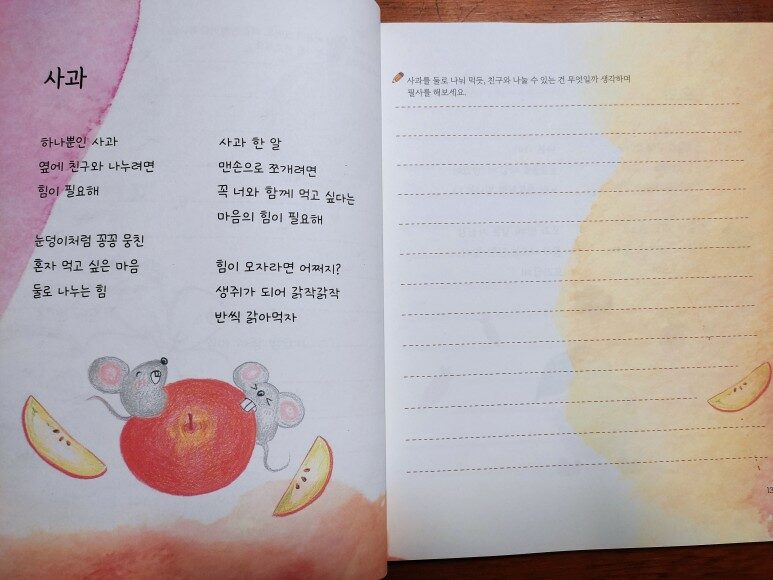 사과
하나뿐인 사과
옆에 친구와 나누려면
힘이 필요해
눈덩이처럼 꽁꽁 뭉친
혼자 먹고 싶은 마음
둘로 나누는 힘
사과 한 알
맨손으로 쪼개려면
꼭 너와 함께 먹고 싶다는
마음의 힘이 필요해
힘이 모자라면 어쩌지?
생쥐가 되어 갉작갉작
반씩 갉아먹자
사과를 둘로 나눠 먹듯, 친구와 나눌 수 있는 건 무엇일까 생각하며
필사를 해보세요.
13